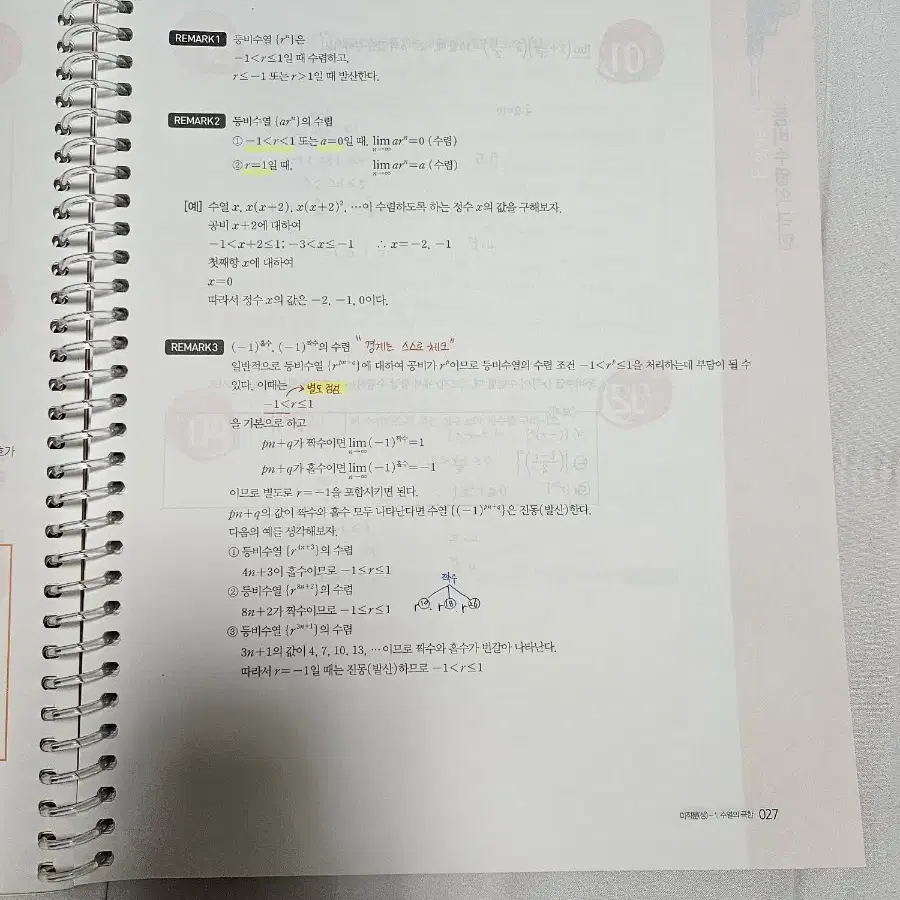 REMARK1 등비수열 {rⁿ}은
−1<r≤1일 때 수렴하고,
r≤−1 또는 r>1일 때 발산한다.
REMARK2 등비수열 {arⁿ}의 수렴
① −1<r<1 또는 a=0일 때, lim n→∞ arⁿ=0 (수렴)
② r=1일 때, lim n→∞ arⁿ=a (수렴)
[예] 수열 x, x(x+2), x(x+2)², …이 수렴하도록 하는 정수 x의 값을 구해보자.
공비 x+2에 대하여
−1<x+2≤1; −3<x≤−1 ∴ x=−2, −1
첫째항 x에 대하여
x=0
따라서 정수 x의 값은 −2, −1, 0이다.
REMARK3 (−1)^홀수, (−1)^짝수의 수렴 " 경계는 스스로 체크"
일반적으로 등비수열 {r^(pn+q)}에 대하여 공비가 r^p이므로 등비수열의 수렴 조건 −1<r^p≤1을 처리하는데 부담이 될 수
있다. 이때는 별도 검섬
−1<r≤1
을 기본으로 하고
pn+q가 짝수이면 lim n→∞ (−1)^짝수=1
pn+q가 홀수이면 lim n→∞ (−1)^홀수=−1
이므로 별도로 r=−1을 포함시키면 된다.
pn+q의 값이 짝수와 홀수 모두 나타난다면 수열 {(−1)^(pn+q)}은 진동(발산)한다.
다음의 예를 생각해보자.
① 등비수열 {r^(4n+3)}의 수렴
4n+3이 홀수이므로 −1≤r≤1
② 등비수열 {r^(8n+2)}의 수렴 짝수
8n+2가 짝수이므로 −1≤r≤1 r^10, r^18, r^26
③ 등비수열 {r^(3n+1)}의 수렴
3n+1의 값이 4, 7, 10, 13, …이므로 짝수와 홀수가 번갈아 나타난다.
따라서 r=−1일 때는 진동(발산)하므로 −1<r≤1
미적분(상)−1. 수열의 극한 027